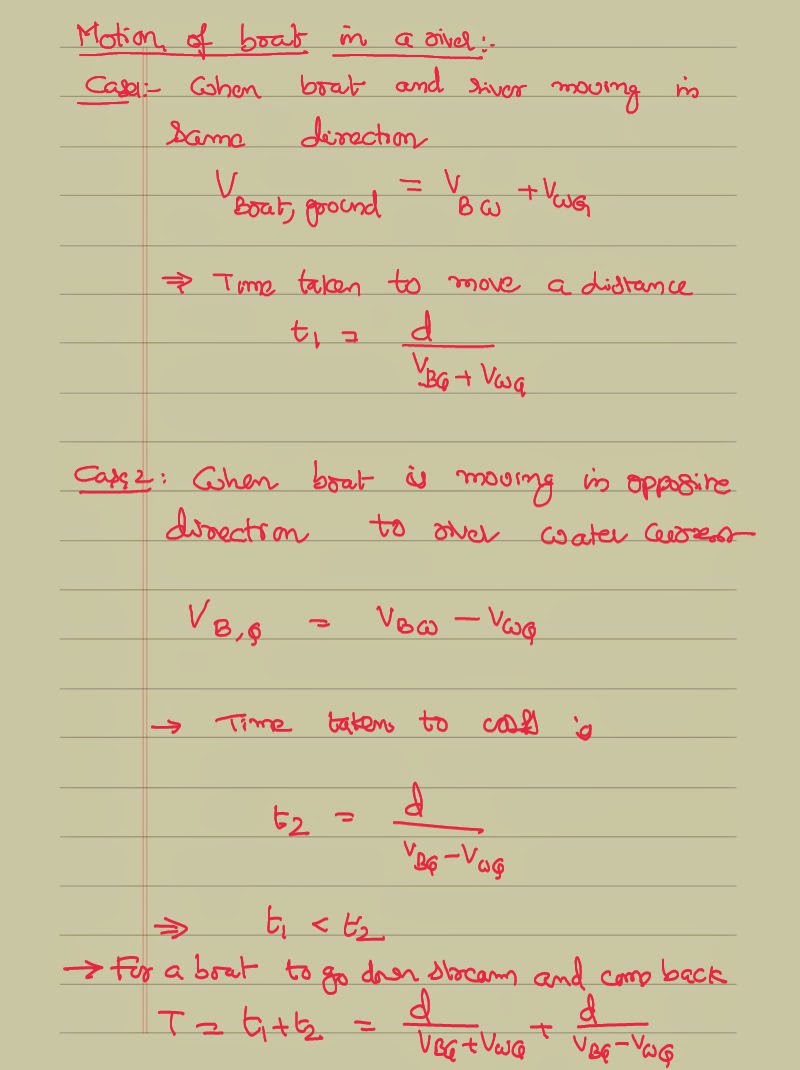 Motion of boat in a river:-
Case1:- When boat and river moving in
same direction
V_Boat, ground = V_BW + V_WG
⇒ Time taken to move a distance
t₁ = d / (V_BG + V_WG)
Case 2: When boat is moving in opposite
direction to river water current
V_B,G = V_BW - V_WG
→ Time taken to cross is
t₂ = d / (V_BG - V_WG)
⇒ t₁ < t₂
→ For a boat to go down stream and come back
T = t₁ + t₂ = d / (V_BG + V_WG) + d / (V_BG - V_WG)